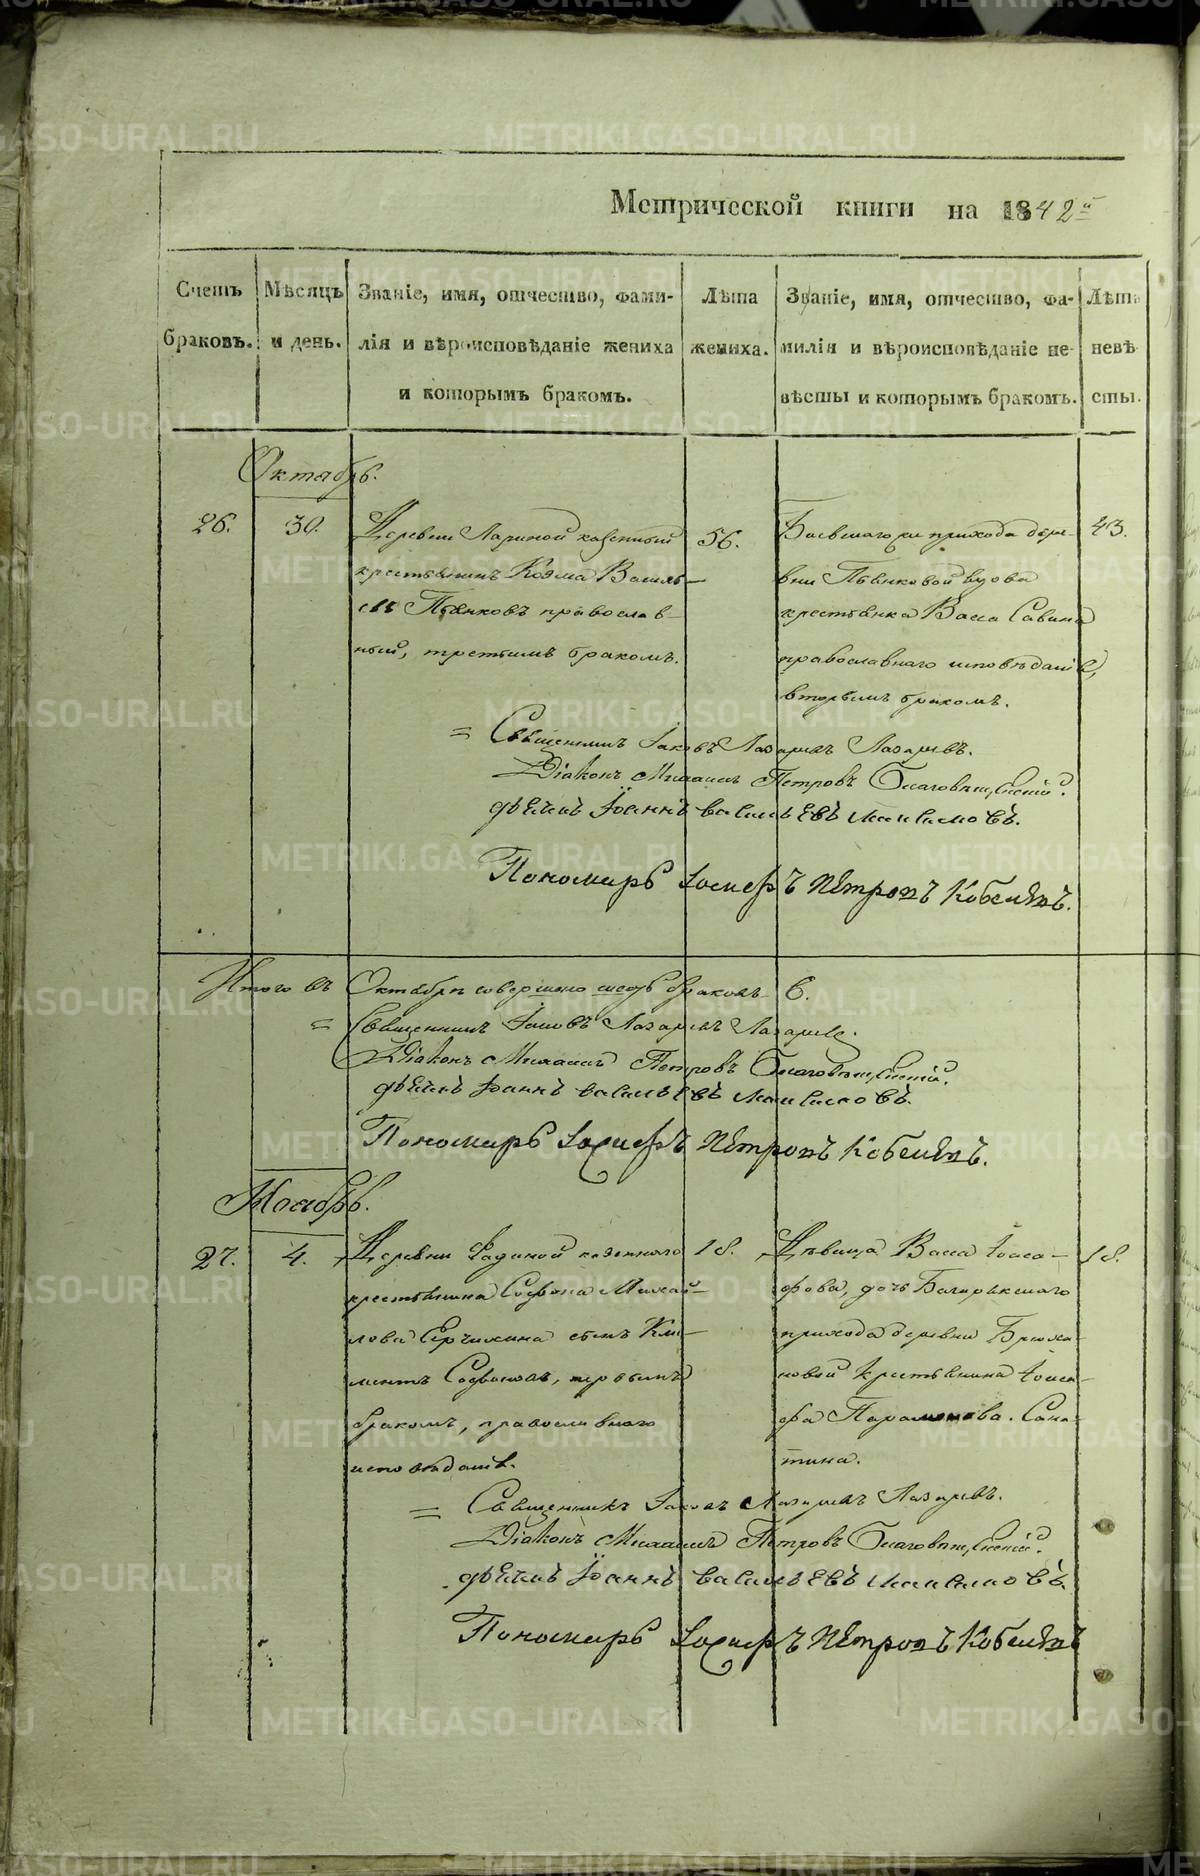 Метрической книги на 1842й
Счетъ браковъ.
Мѣсяцъ и день.
Званіе, имя, отчество, фами-
лія и вѣроисповѣданіе жениха
и которымъ бракомъ.
Лѣта жениха.
Званіе, имя, отчество, фа-
милія и вѣроисповѣданіе не-
вѣсты и которымъ бракомъ.
Лѣта невѣ-
сты.
Октябрь.
26. 30.
Деревни Лариной казенный
крестьянинъ Козма Василь-
евъ Пьянковъ православ-
ный, третьимъ бракомъ.
56.
прихода дере-
вни Пьянковой вдова
крестьянка Васса Савина
православнаго исповѣданія,
вторымъ бракомъ.
43.
= Священникъ Іаковъ Лазаревъ Лазаревъ.
Діаконъ Михаилъ Петровъ Благовѣщенскій.
Іоаннъ Васильевъ Максимовъ.
Пономарь Іосифъ Петровъ
Итого въ Октябрѣ совершено шесть браковъ 6.
= Священникъ Іаковъ Лазаревъ Лазаревъ.
Діаконъ Михаилъ Петровъ Благовѣщенскій.
Іоаннъ Васильевъ Максимовъ.
Пономарь Іосифъ Петровъ
Ноябрь.
27. 4.
Деревни казеннаго
крестьянина Софона Михай-
лова сынъ Кли-
ментъ Софоновъ, первымъ
бракомъ, православнаго
исповѣданія.
18.
Дѣвица Васса Іоаса-
фова, дочь
прихода деревни
крестьянина Іоаса-
фа Парамонова.
18.
= Священникъ Іаковъ Лазаревъ Лазаревъ.
Діаконъ Михаилъ Петровъ Благовѣщенскій.
Іоаннъ Васильевъ Максимовъ.
Пономарь Іосифъ Петровъ
METRIKI.GASO-URAL.RU